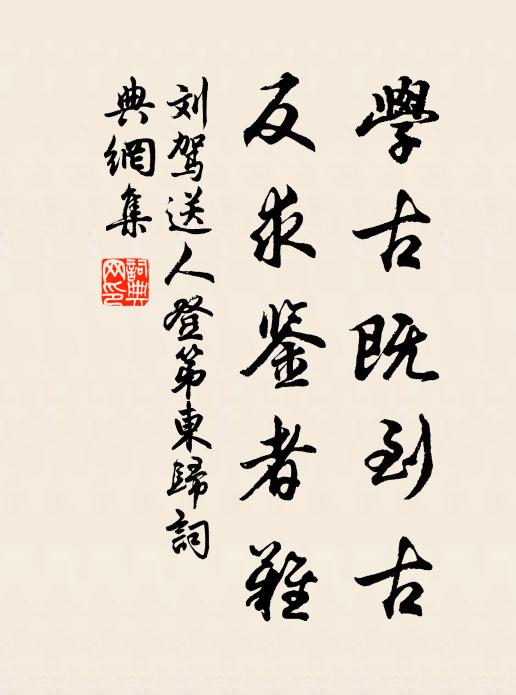 學古既到古
反求鉴者難
刘驾送人登第東歸詞
典網集
詞典網印